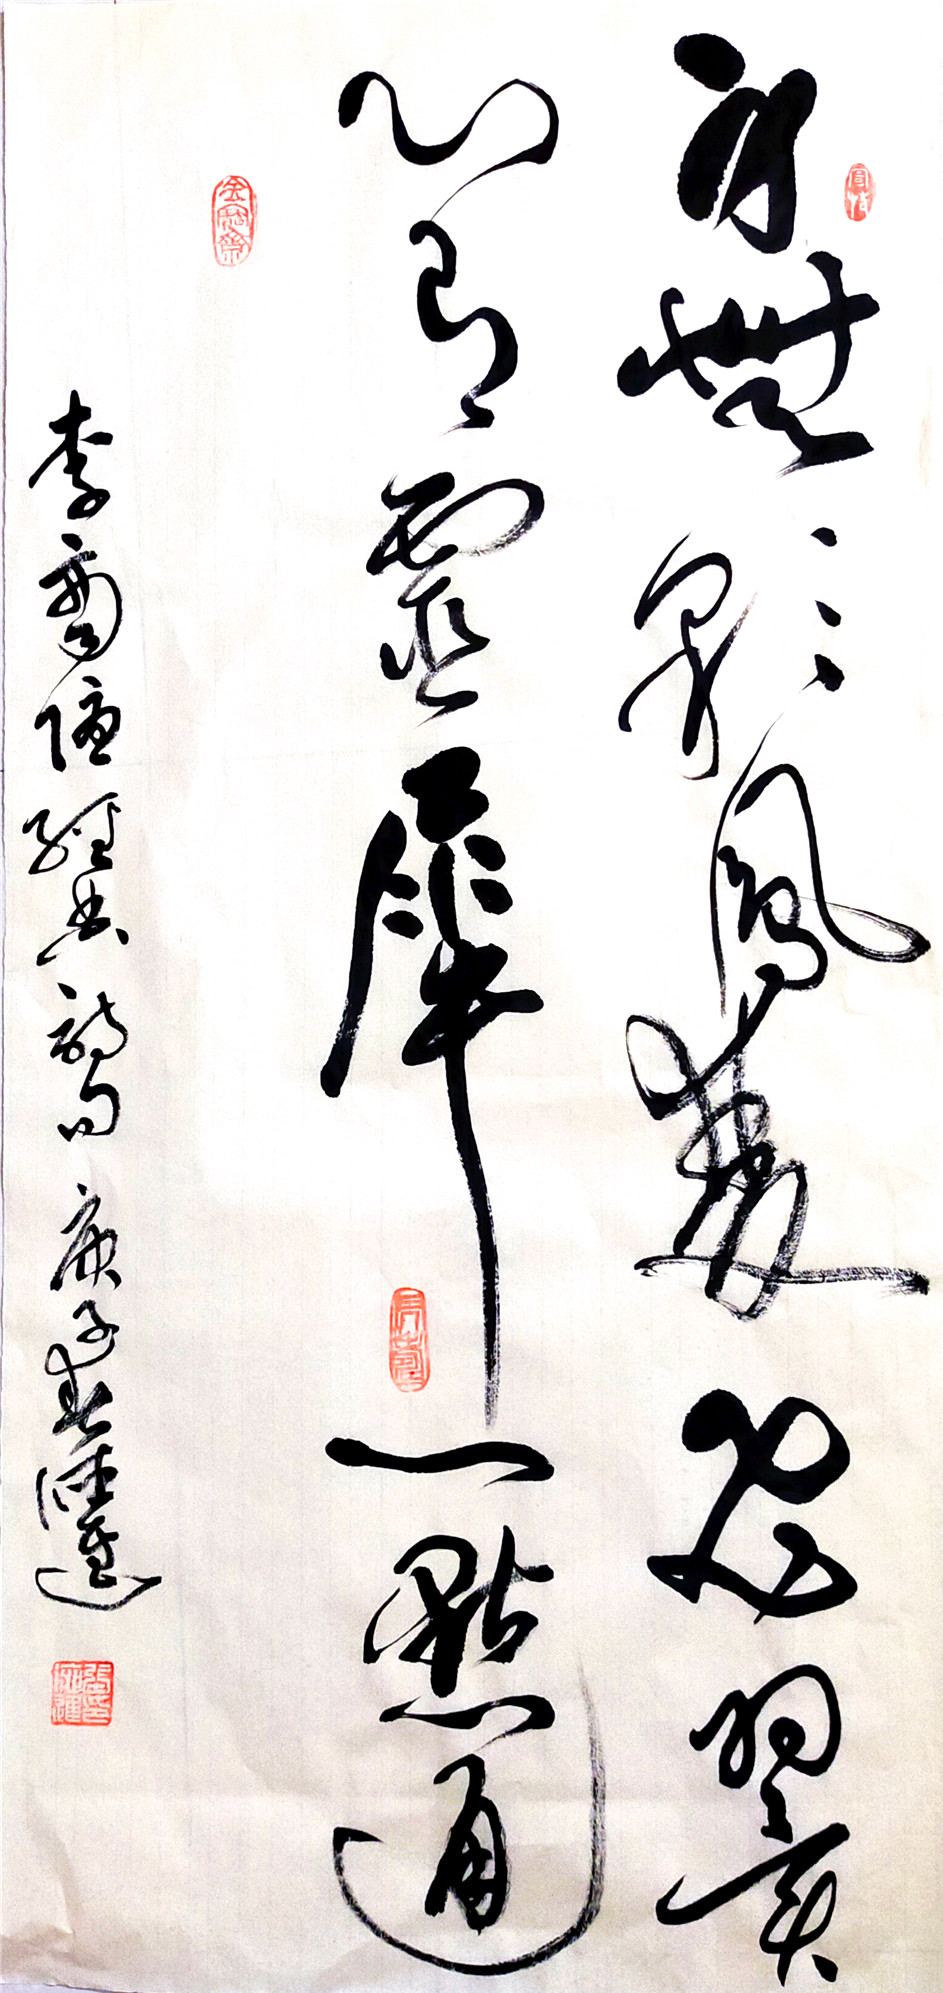 身無彩鳳雙飛翼
心有靈犀一點通
李商隱經典詩句 庚子春